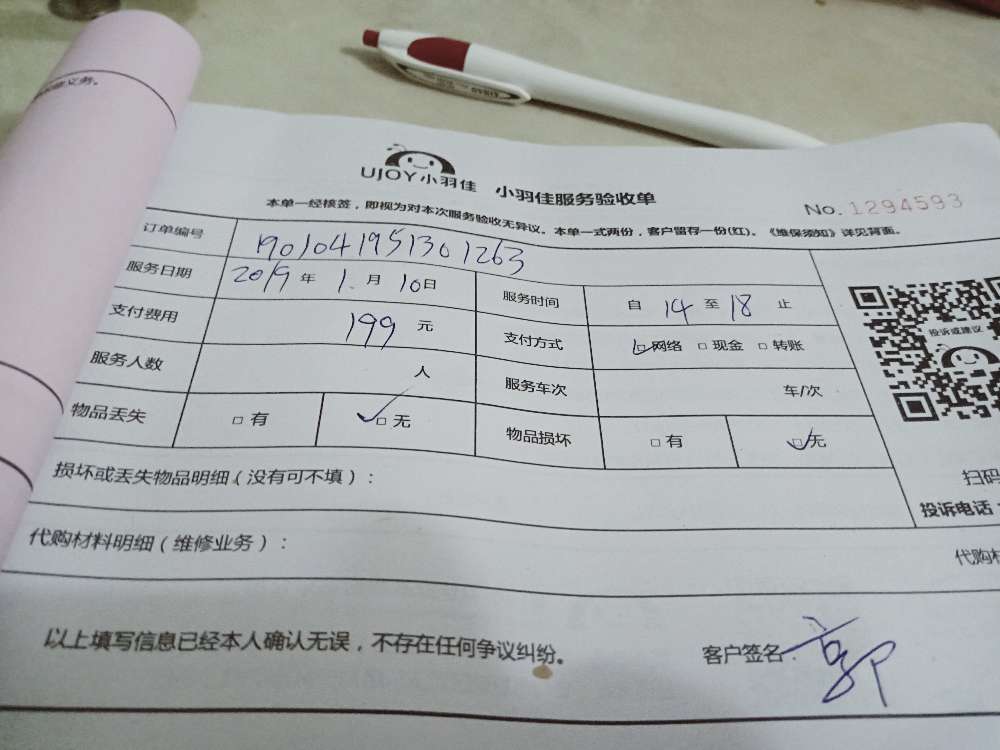 义务。
UJOY小羽佳 小羽佳服务验收单
No. 1294593
本单一经核签，即视为对本次服务验收无异议。本单一式两份，客户留存一份(红)。《维保须知》详见背面。
订单编号 1901041951301263
服务日期 2019年 1.月 10日 服务时间 自 14 至 18 止
支付费用 199 元 支付方式 □网络 □现金 □转账
服务人数 人 服务车次 车/次
物品丢失 □有 □无 物品损坏 □有 □无
投诉或建议
损坏或丢失物品明细(没有可不填)： 扫码
投诉电话
代购材料明细(维修业务)： 代购材
以上填写信息已经本人确认无误，不存在任何争议纠纷。 客户签名： 郭